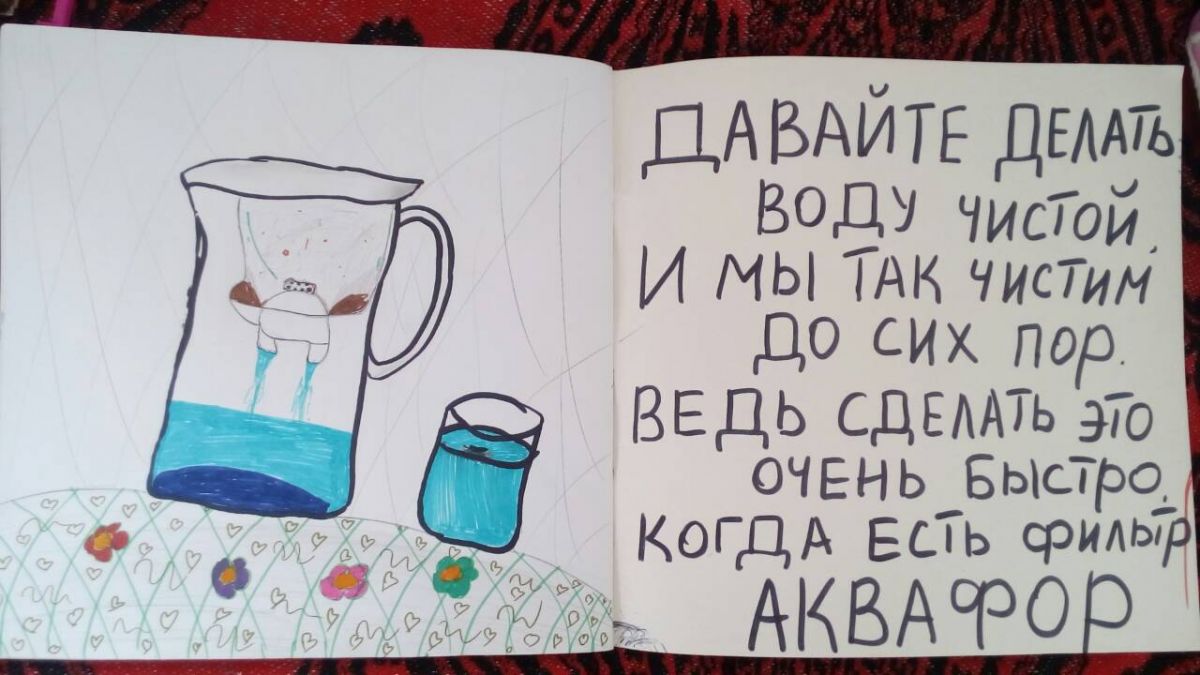 ДАВАЙТЕ ДЕЛАТЬ
ВОДУ ЧИСТОЙ,
И МЫ ТАК ЧИСТИМ
ДО СИХ ПОР.
ВЕДЬ СДЕЛАТЬ ЭТО
ОЧЕНЬ БЫСТРО,
КОГДА ЕСТЬ ФИЛЬТР
АКВАФОР